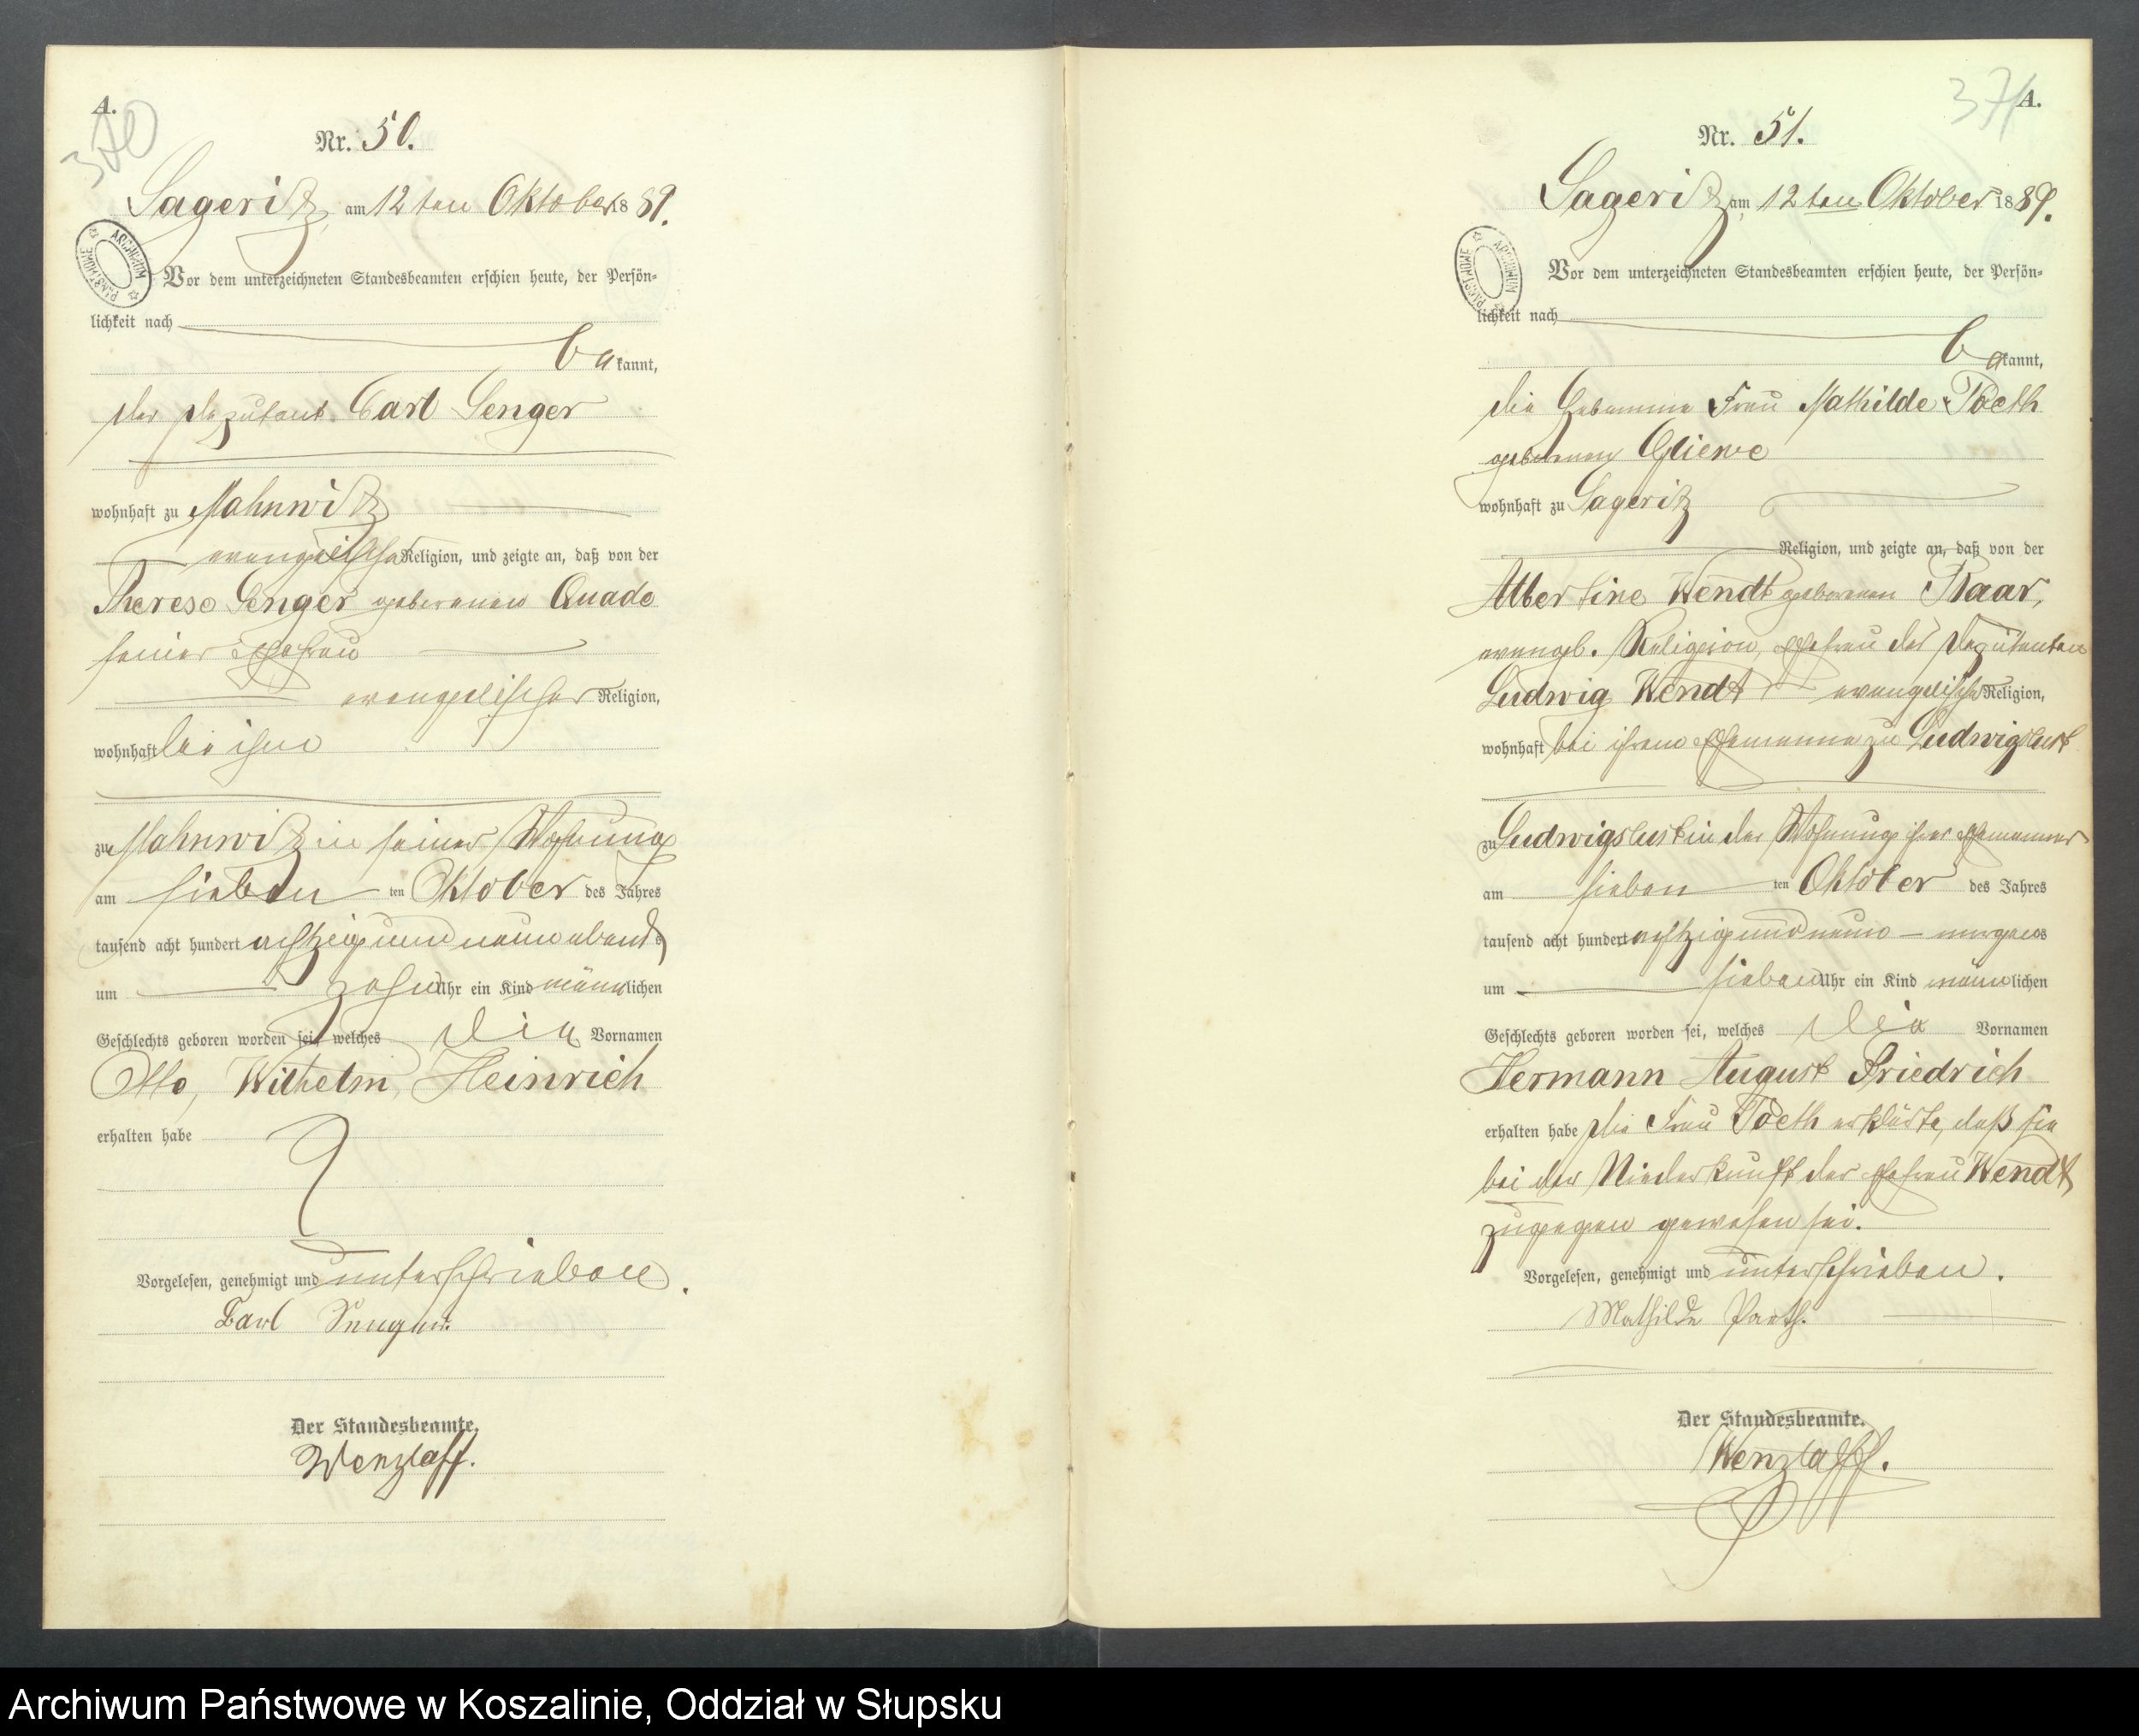 A.
370
Nr. 50.
Sageritz, am 12ten Oktober 1889.
ARCHIWUM PAŃSTWOWE
Vor dem unterzeichneten Standesbeamten erschien heute, der Persön-
lichkeit nach
bekannt,
der Deputant Carl Senger
wohnhaft zu Mahnwitz
evangelischer Religion, und zeigte an, daß von der
Therese Senger geborenen Quade
seiner Ehefrau
evangelischer Religion,
wohnhaft bei ihm
zu Mahnwitz in seiner Wohnung
am sieben ten Oktober des Jahres
tausend acht hundert achtzig und neun abends
um zehn Uhr ein Kind männlichen
Geschlechts geboren worden sei, welches die Vornamen
Otto, Wilhelm, Heinrich
erhalten habe
Vorgelesen, genehmigt und unterschrieben.
Carl Senger.
Der Standesbeamte.
Wenzlaff.
371
A.
Nr. 51.
Sageritz am 12ten Oktober 1889.
ARCHIWUM PAŃSTWOWE
Vor dem unterzeichneten Standesbeamten erschien heute, der Persön-
lichkeit nach
bekannt,
die Hebamme Frau Mathilde Paeth
geborenen Gliewe
wohnhaft zu Sageritz
Religion, und zeigte an, daß von der
Albertine Wendt geborenen Raar,
evangel. Religion, Ehefrau des Deputanten
Ludwig Wendt evangelischer Religion,
wohnhaft bei ihrem Ehemanne zu Ludwigslust
zu Ludwigslust in der Wohnung ihres Ehemannes
am sieben ten Oktober des Jahres
tausend acht hundert achtzig und neun – morgens
um sieben Uhr ein Kind männlichen
Geschlechts geboren worden sei, welches die Vornamen
Hermann August Friedrich
erhalten habe die Frau Paeth erklärte, daß sie
bei der Niederkunft der Ehefrau Wendt
zugegen gewesen sei.
Vorgelesen, genehmigt und unterschrieben.
Mathilde Paeth.
Der Standesbeamte.
Wenzlaff.
Archiwum Państwowe w Koszalinie, Oddział w Słupsku